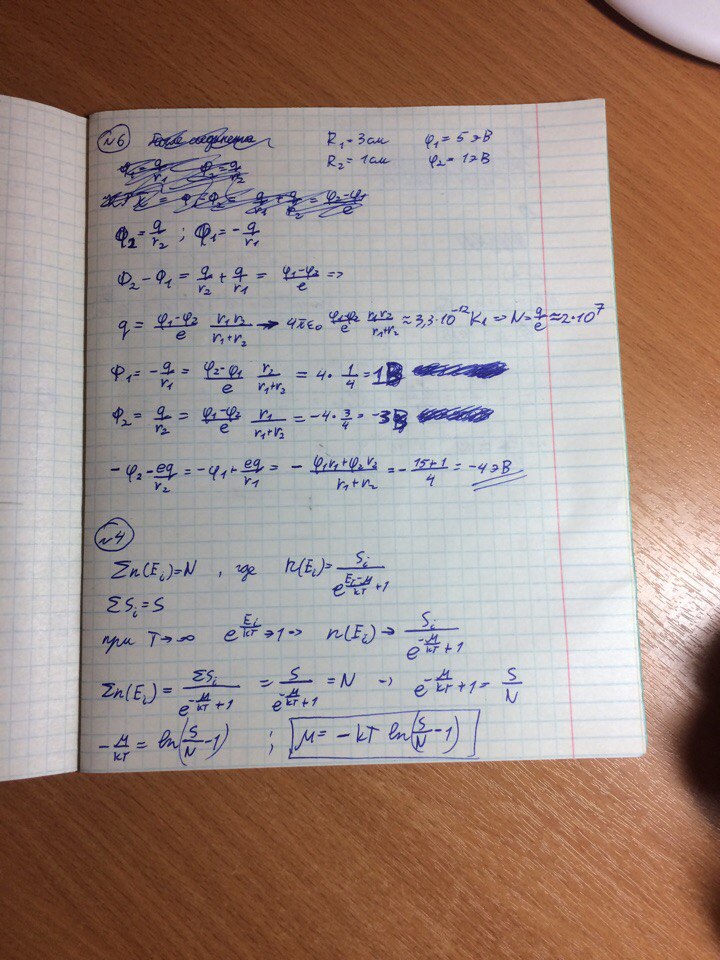 №6 R₁=3см φ₁=5эВ
R₂=1см φ₂=1эВ
Φ₂=q/r₂ ; Φ₁=-q/r₁
Φ₂-Φ₁=q/r₂+q/r₁=(φ₁-φ₂)/e =>
q=(φ₁-φ₂)/e r₁r₂/(r₁+r₂) → 4πε₀ (φ₁-φ₂)/e r₁r₂/(r₁+r₂) ≈3,3·10⁻¹² Кл => N=q/e≈2·10⁷
Φ₁=-q/r₁=(φ₂-φ₁)/e r₂/(r₁+r₂)=4·1/4=1В
Φ₂=q/r₂=(φ₁-φ₂)/e r₁/(r₁+r₂)=-4·3/4=-3В
-φ₂-eq/r₂=-φ₁+eq/r₁=-(φ₁r₁+φ₂r₂)/(r₁+r₂)=-(15+1)/4=-4эВ
№4
Σn(Eᵢ)=N , где n(Eᵢ)=Sᵢ/(e^((Eᵢ-μ)/kT)+1)
ΣSᵢ=S
при T→∞ e^(Eᵢ/kT)→1 => n(Eᵢ)→Sᵢ/(e^(-μ/kT)+1)
Σn(Eᵢ)=ΣSᵢ/(e^(-μ/kT)+1)=S/(e^(-μ/kT)+1)=N → e^(-μ/kT)+1=S/N
-μ/kT=ln(S/N-1) ; μ=-kT ln(S/N-1)